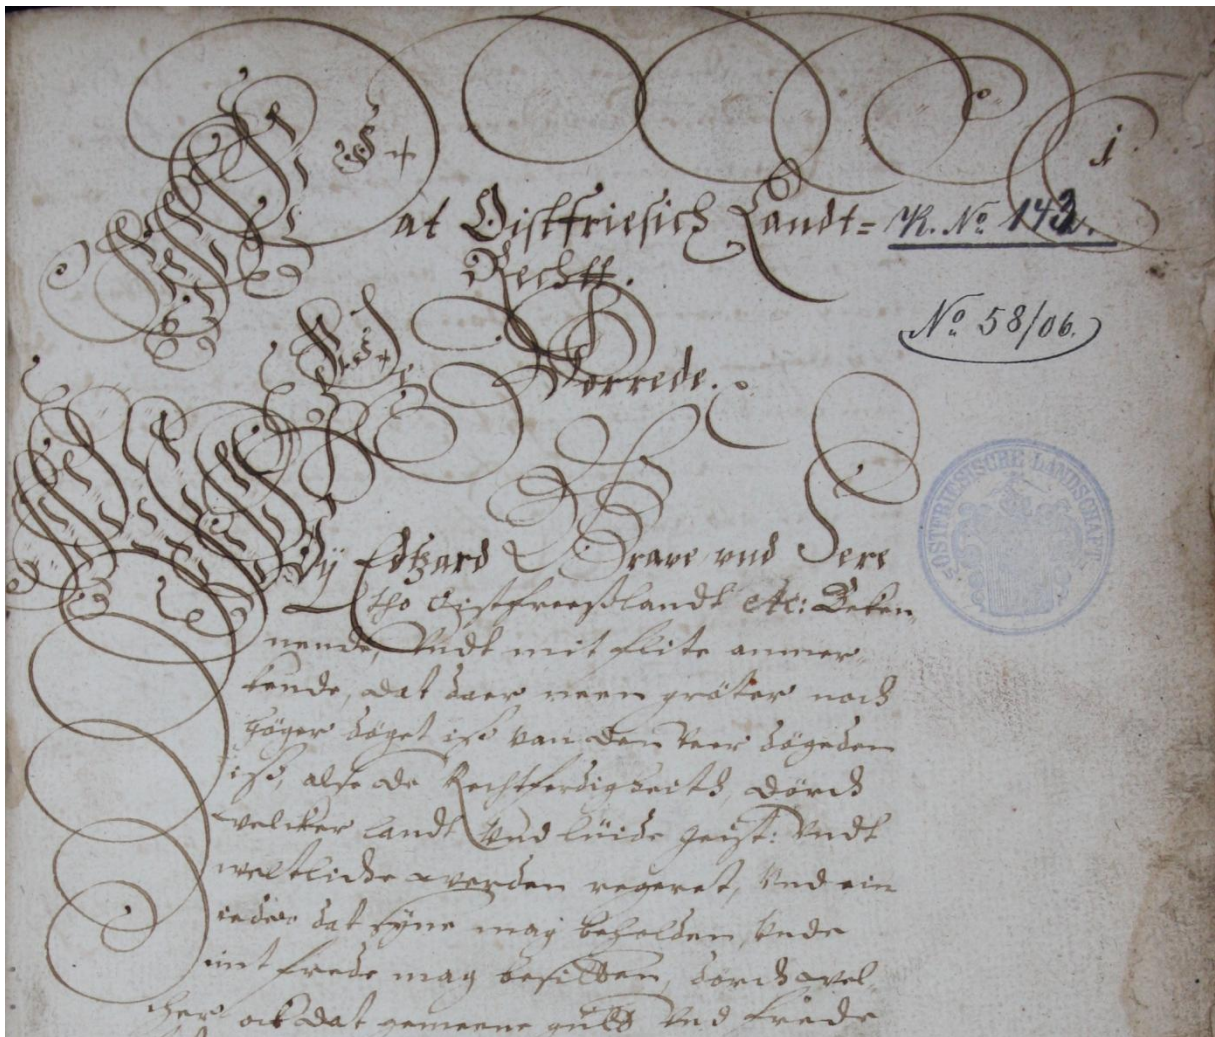 Dat Oistfriesich Landt=
Rechtt.
Vorrede.
1
K. No 143.
No 58/06.
OSTFRIESISCHE LANDSCHAFT
Wÿ Edtzard Grave vnd Here
tho Oistfreeßlandt etc: Beken,
nende, Vndt mit flite anmer,
kende, dat daer neen gröter noch
höger döget iß van den veer dögeden
iß, alse de Rechtferdigkeith, dörch
welcker landt Vnd lüide geist: Vndt
weltlicke werden regeret, Vnd ein
ieder dat syne mag beholden, Vnde
int frede mag besitten, dorch wel,
cher ock dat gemeene gutt Vnd frede